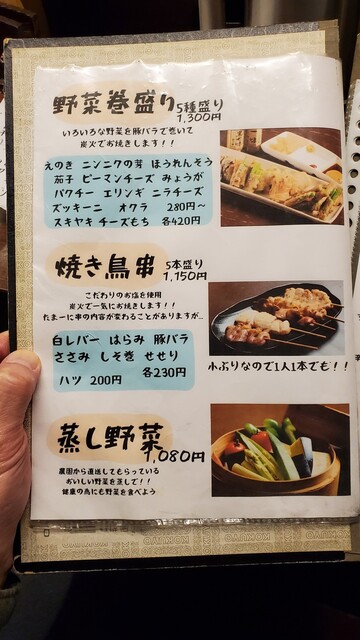 野菜巻盛り 5種盛り
1,300円
いろいろな野菜を豚バラで巻いて
炭火でお焼きします！！
えのき ニンニクの芽 ほうれんそう
茄子 ピーマンチーズ みょうが
パクチー エリンギ ニラチーズ
ズッキーニ オクラ 280円～
スキヤキ チーズもち 各420円
焼き鳥串 5本盛り
1,150円
こだわりのお塩を使用
炭火で一気にお焼きします！！
たまーに串の内容が変わることがありますが…
白レバー はらみ 豚バラ
ささみ しそ巻 せせり
各230円
ハツ 200円
小ぶりなので1人1本でも！！
蒸し野菜
1,080円
農園から直送してもらっている
おいしい野菜を蒸しで！！
健康の為にも野菜を食べよう
KOKUYO